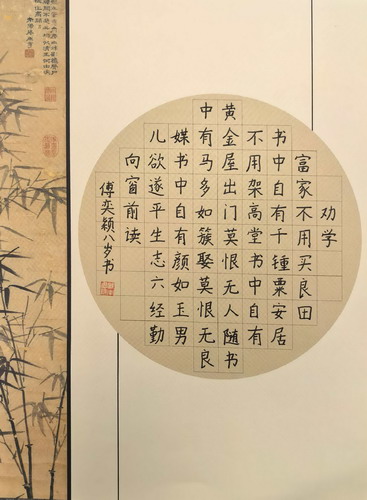 劝学
富家不用买良田
书中自有千锺粟安居
不用架高堂书中自有
黄金屋出门莫恨无人随书
中有马多如簇娶莫恨无良
媒书中自有颜如玉男
儿欲遂平生志六经勤
向窗前读
傅奕颖八岁书